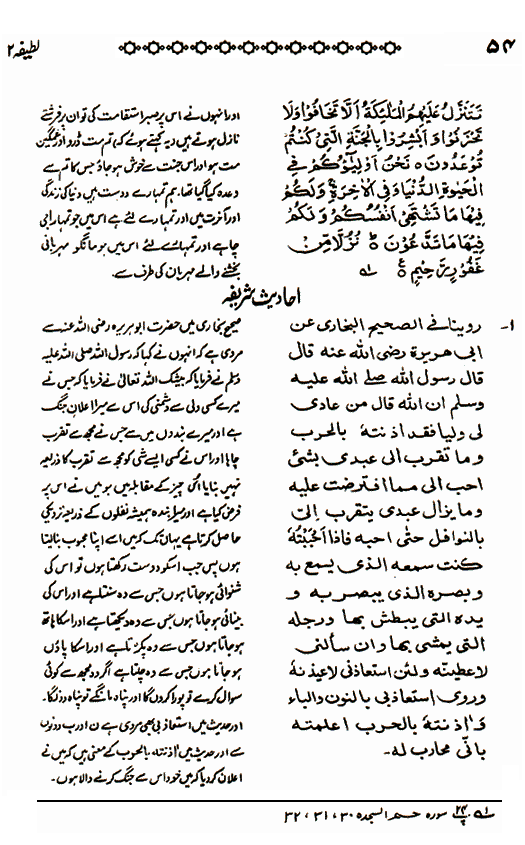 ۵۴
لطیفہ ۲
تَتَنَزَّلُ عَلَيْهِمُ الْمَلٰٓئِكَةُ اَلَّا تَخَافُوْا وَلَا
تَحْزَنُوْا وَ اَبْشِرُوْا بِالْجَنَّةِ الَّتِيْ كُنْتُمْ
تُوْعَدُوْنَ ٥ نَحْنُ اَوْلِيٰٓؤُكُمْ فِي
الْحَيٰوةِ الدُّنْيَا وَفِي الْاٰخِرَةِ ۚ وَلَكُمْ
فِيْهَا مَا تَشْتَهِيْٓ اَنْفُسُكُمْ وَلَكُمْ
فِيْهَا مَا تَدَّعُوْنَ ٥ نُزُلًا مِّنْ
غَفُوْرٍ رَّحِيْمٍ ٥ ۱ے
اور انہوں نے اس پر صبر استقامت کی تو ان پر فرشتے
نازل ہوتے ہیں دیہ کہتے ہوئے کہ تم مت ڈرو اور غمگین
مت ہو اور اس جنت سے خوش ہو جاؤ جس کا تم سے
وعدہ کیا گیا تھا، ہم تمہارے دوست ہیں دنیا کی زندگی
اور آخرت میں اور تمہارے لئے ہے اس میں جو تمہارا جی
چاہے اور تمہارے لئے اس میں جو مانگو مہربانی
بخشنے والے مہربان کی طرف سے۔
احادیث شریفہ
۱۔ روينا فى الصحيح البخارى عن
ابى هريرة رضى الله عنه قال
قال رسول الله صلے الله عليه
وسلم ان الله قال من عادى
لى وليا فقد اذنتهٗ بالحرب
وما تقرب الى عبدى بشئ
احب الى مما افترضت عليه
وما يزال عبدى يتقرب الىّ
بالنوافل حتّٰى احبه فاذا اَحْبَبْتُهٗ
كنت سمعه الذى يسمع به
وبصره الذى يبصر به و
يده التى يبطش بها ورجله
التى يمشى بها وان سألنى
لاعطينّه ولئن استعاذنى لاعيذنهٗ
وروى استعاذ بى بالنون والباء
وَاٰذنتهٗ بالحرب اعلمته
بانّى محارب له۔
صحیح بخاری میں حضرت ابو ہریرہ رضی اللہ عنہ سے
مروی ہے کہ انہوں نے کہا کہ رسول اللہ صلی اللہ علیہ
وسلم نے فرمایا کہ بیشک اللہ تعالیٰ نے فرمایا کہ جس نے
میرے کسی ولی سے دشمنی کی اس سے میرا اعلان جنگ
ہے اور میرے بندوں میں سے جس نے مجھ سے تقرب
چاہا اور اس نے کسی ایسے شی کو مجھ سے تقرب کا ذریعہ
نہیں بنایا اگلی چیز کے مقابلہ میں جو میں نے اس پر
فرض کیا ہے اور میرا بندہ ہمیشہ نفلوں کے ذریعہ نزدیکی
حاصل کرتا ہے یہاں تک کہ میں اسے اپنا محبوب بنا لیتا
ہوں پس جب اسکو دوست رکھتا ہوں تو اس کی
شنوائی ہو جاتا ہوں جس سے وہ سنتا ہے اور اس کی
بینائی ہو جاتا ہوں جس سے وہ دیکھتا ہے اور اسکا ہاتھ
ہو جاتا ہوں جس سے وہ پکڑتا ہے اور اسکا پاؤں
ہو جاتا ہوں جس سے وہ چلتا ہے اگر وہ مجھ سے کوئی
سوال کرے تو پورا کروں گا اور پناہ مانگے تو پناہ دونگا۔
اور حدیث میں استعاذ بی بھی مروی ہے ن اور ب دونوں
سے اور حدیث میں "اذنتہٗ بالحرب کے معنی ہیں کہ میں نے
اعلان کر دیا کہ میں خود اس سے جنگ کرنے والا ہوں۔
۱ے پ ۲۴ سورہ حٰمٓ السجدہ ۳۰، ۳۱، ۳۲